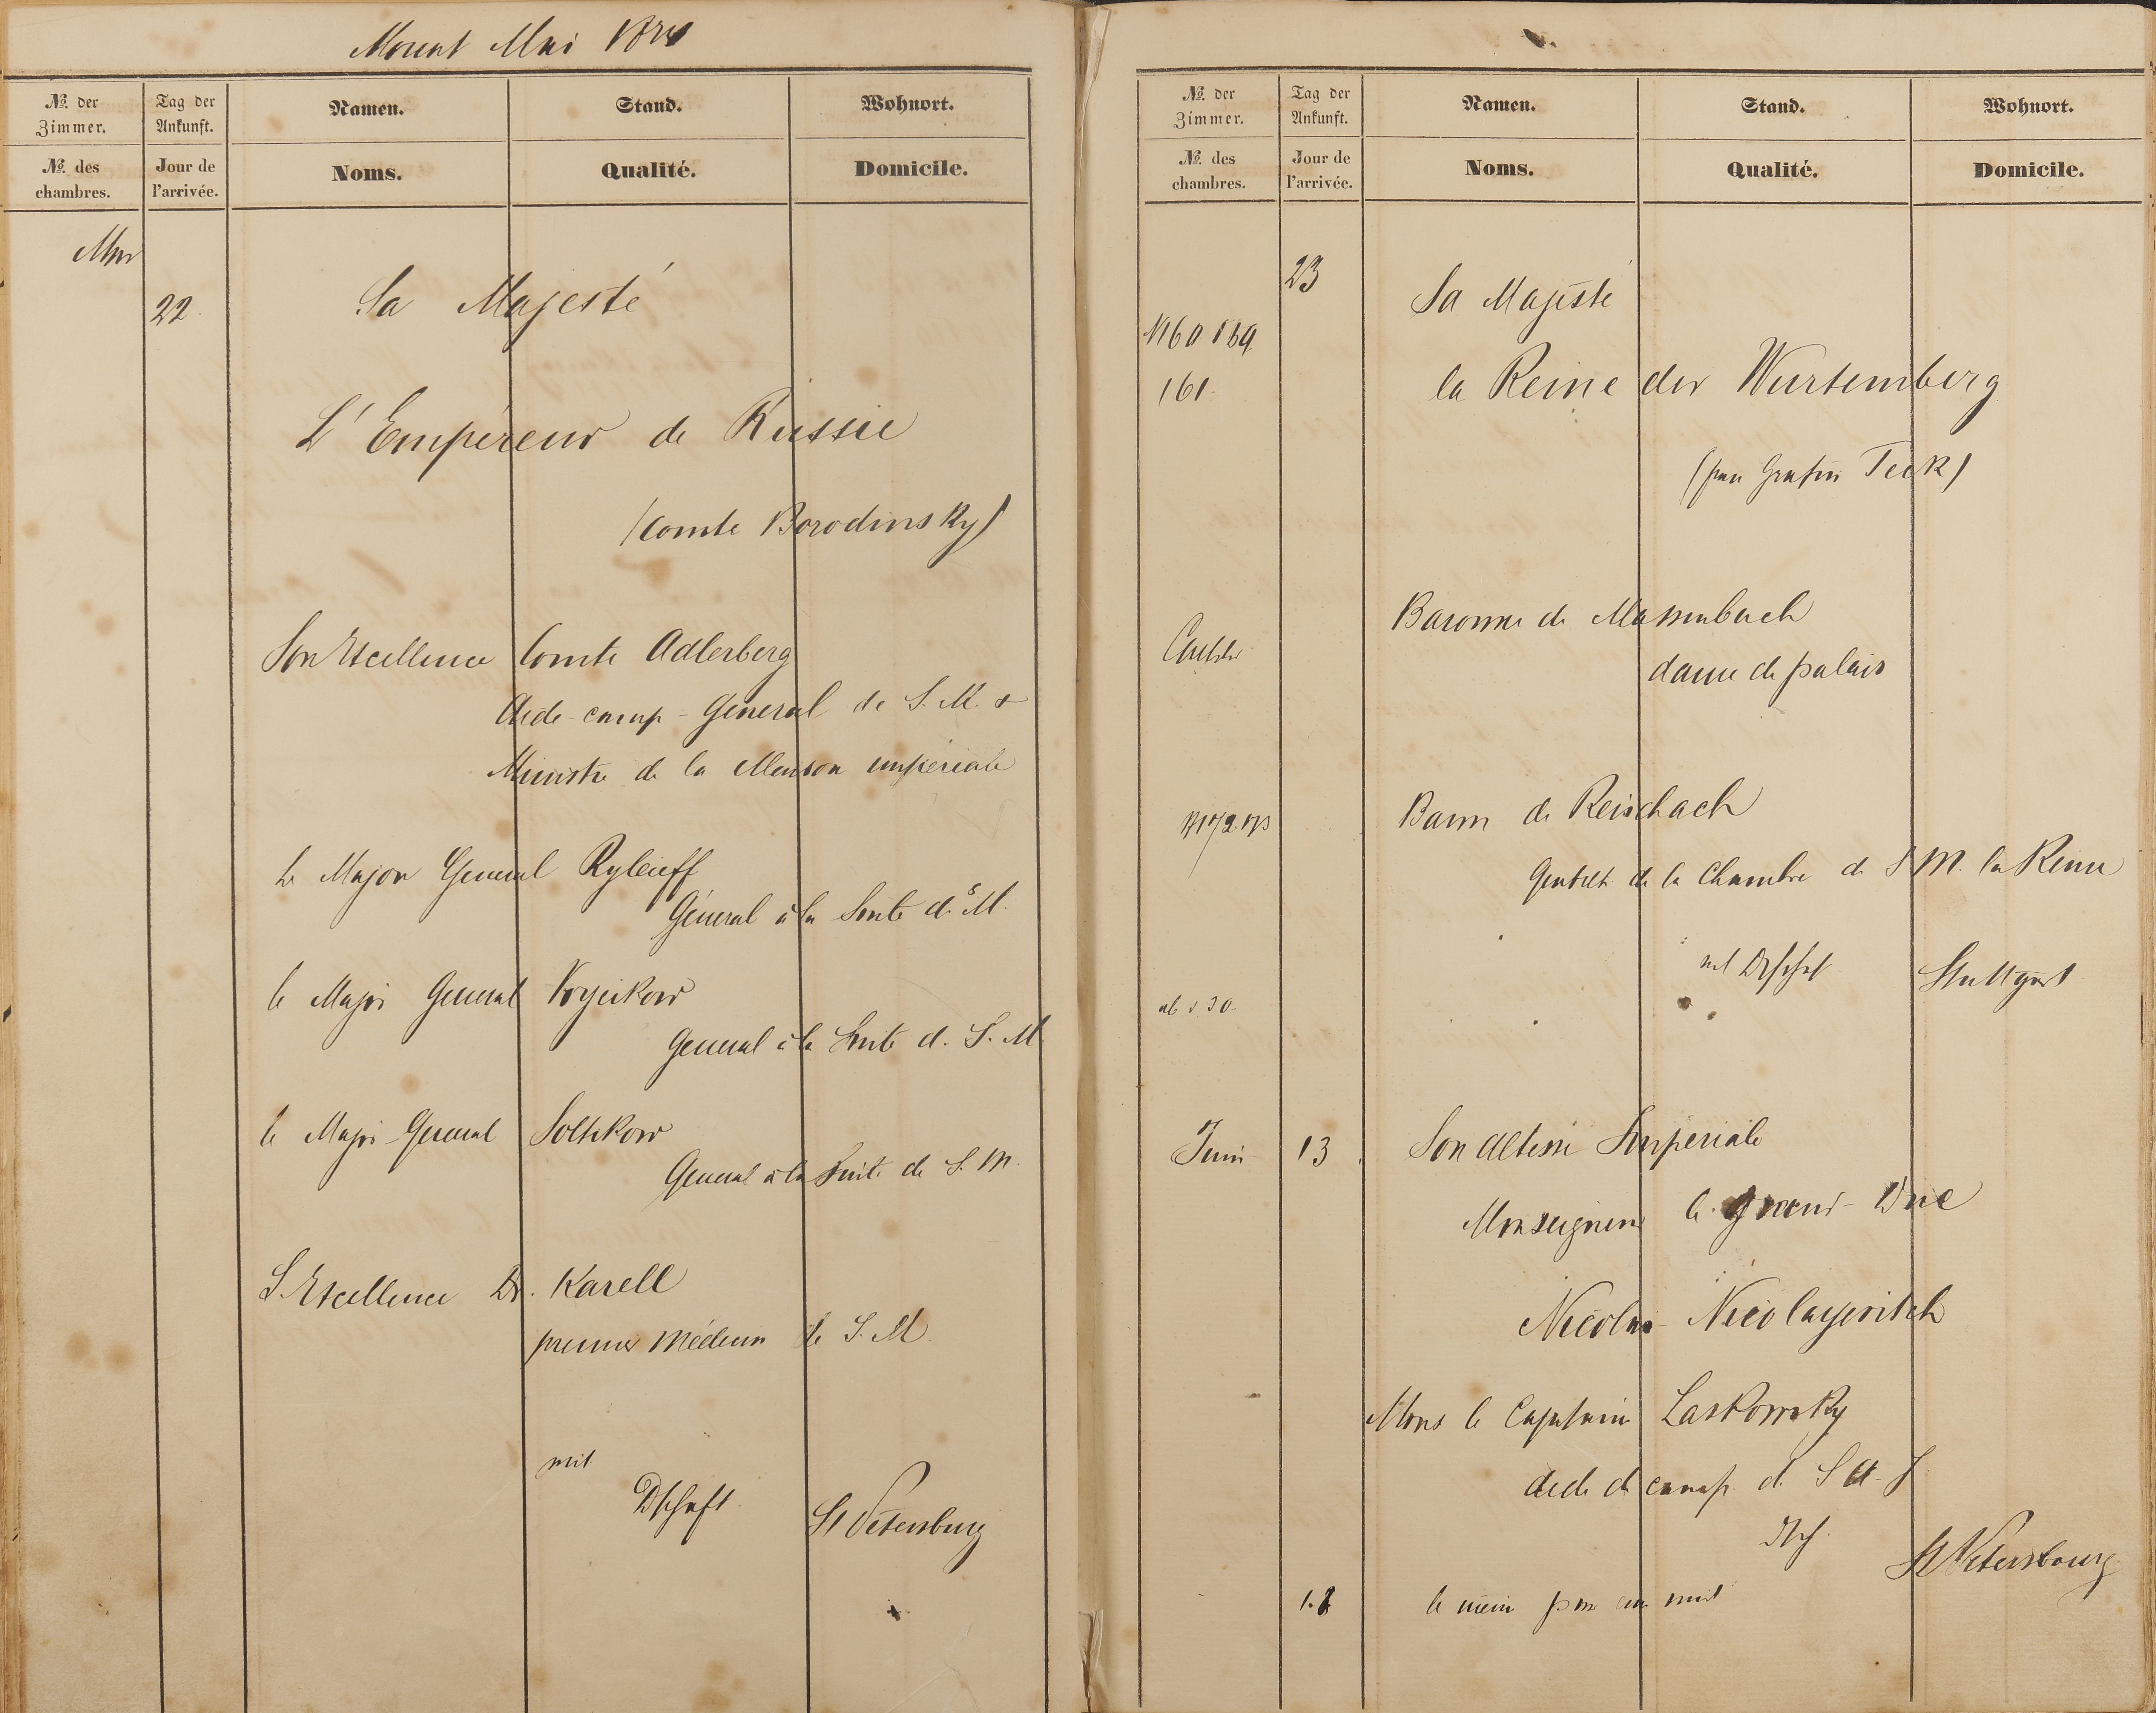 Monat Mai
№ der Zimmer.
Tag der Ankunft.
Namen.
Stand.
Wohnort.
№ des chambres.
Jour de l'arrivée.
Noms.
Qualité.
Domicile.
Mai
22.
Sa Majesté
L'Empéreur de Russie
(Comte Borodinsky)
Son Excellence Comte Adlerberg
Aide-camp-General de S. M. &
Ministre de la Maison imperiale
le Major General Ryleieff
Géneral à la Suite de S. M.
le Major General Voyeikow
General à la Suite d. S. M.
le Major-General Soltikow
General à la Suite de S. M.
S. Excellence Dr. Karell
premier Médecin de S. M.
mit
Dschaft
St Petersburg
№ der Zimmer.
Tag der Ankunft.
Namen.
Stand.
Wohnort.
№ des chambres.
Jour de l'arrivée.
Noms.
Qualité.
Domicile.
23
Sa Majesté
161.
la Reine der Wurtemberg
(frau Grafin Teck)
Baronne de Massenbach
dame de palais
Baron de Reischach
de la Chambre de S. M. la Reine
Stuttgart
ab 30.
Juin 13 Son Altesse Imperiale
Monseigneur le Grand-Duc
Nicolai Nicolayevitch
Mons le Capitain Laskowsky
aide de camp d. S. A. J.
St Petersbourg
18 le même